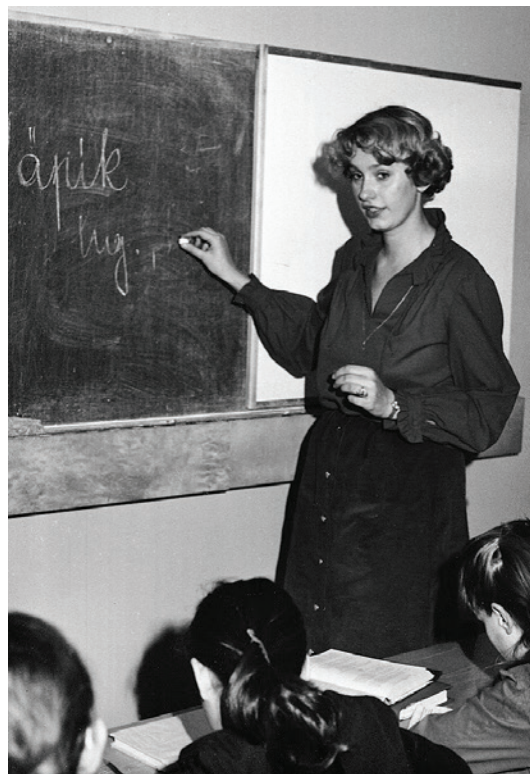 äpik
lug.